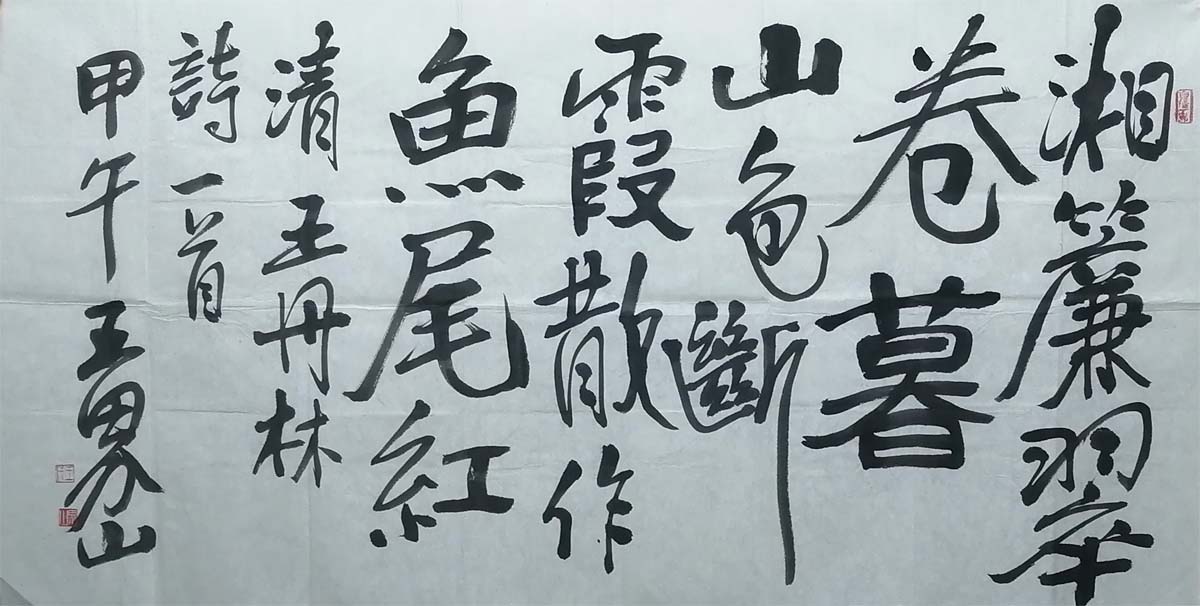 湘簾翠
卷暮
山色斷
霞散作
魚尾紅
清王丹林
詩一首
甲午王界山